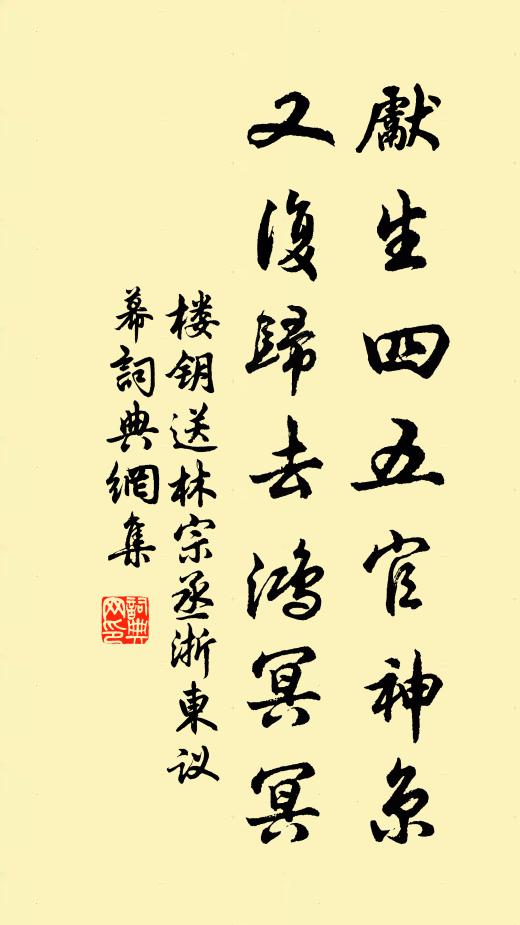 獻生四五官神京
又復歸去鴻冥冥
楼钥送林宗丞浙東议
幕詞典網集
詞典网印